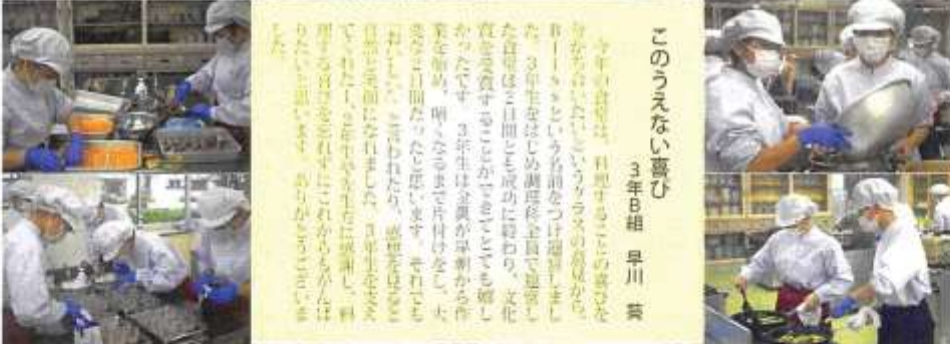 このうえない喜び
3年B組 早川 葵
今年の食堂は、料理することの喜びを
分かち合いたいというクラスの意見から、
Blissという名前をつけ運営しまし
た。3年生をはじめ調理科全員で運営し
た食堂は2日間とも成功に終わり、文化
賞を受賞することができてとても嬉し
かったです。3年生は全員が早朝から作
業を始め、暗くなるまで片付けをし、大
変な2日間だったと思います。それでも
「おいしい」と言われたり、感想をみると
自然と笑顔になれました。3年生を支え
てくれた1、2年生や先生方に感謝し、料
理する喜びを忘れずにこれからもがんば
りたいと思います。ありがとうございま
した。